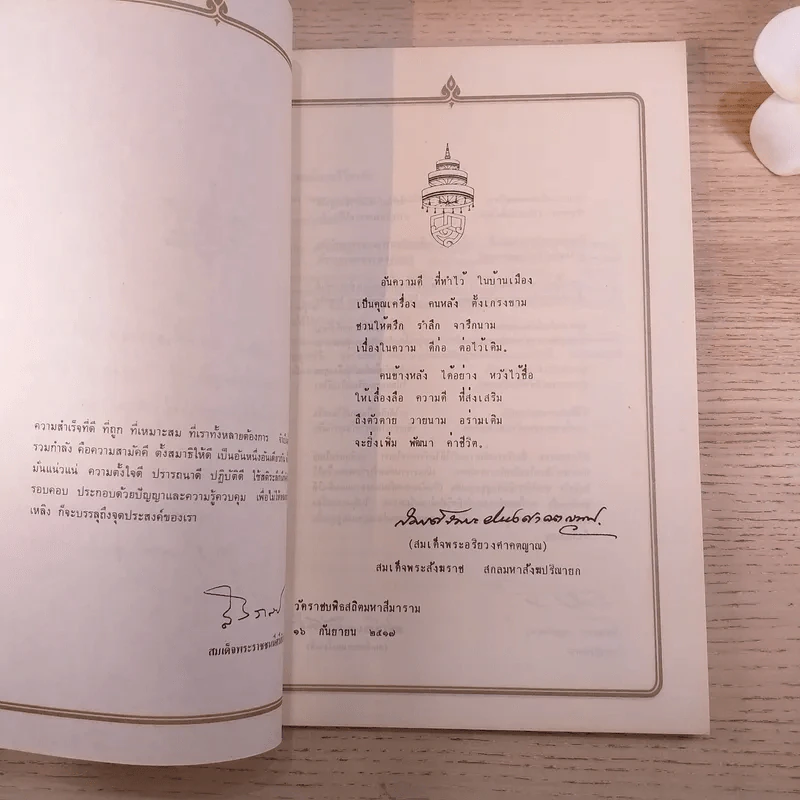 ความสำเร็จที่ดี ที่ถูก ที่เหมาะสม ที่เราทั้งหลายต้องการ
รวมกำลัง คือความสามัคคี ตั้งสมาธิให้ดี เป็นอันหนึ่งอันเดียว
มั่นแน่วแน่ ความตั้งใจดี ปรารถนาดี ปฏิบัติดี
รอบคอบ ประกอบด้วยปัญญาและความรู้ควบคุม
เหลิง ก็จะบรรลุถึงจุดประสงค์ของเรา
อันความดี ที่ทำไว้ ในบ้านเมือง
เป็นคุณเครื่อง คนหลัง ตั้งเกรงขาม
ชวนให้ตรึก รำลึก จารึกนาม
เนื่องในความ ดีก่อ ต่อไว้เดิม.
คนข้างหลัง ได้อย่าง หวังไว้ชื่อ
ให้เลื่องลือ ความดี ที่ส่งเสริม
ถึงตัวตาย วายนาม อร่ามเดิม
จะยิ่งเพิ่ม พัฒนา ค่าชีวิต.
(สมเด็จพระอริยวงศาคตญาณ)
สมเด็จพระสังฆราช สกลมหาสังฆปริณายก
วัดราชบพิธสถิตมหาสีมาราม
๑๖ กันยายน ๒๕๑๗